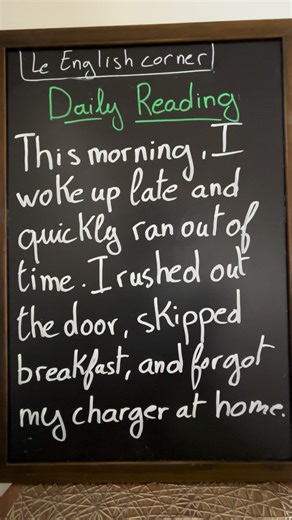 Le English corner
Daily Reading
This morning, I
woke up late and
quickly ran out of
time. I rushed out
the door, skipped
breakfast, and forgot
my charger at home.